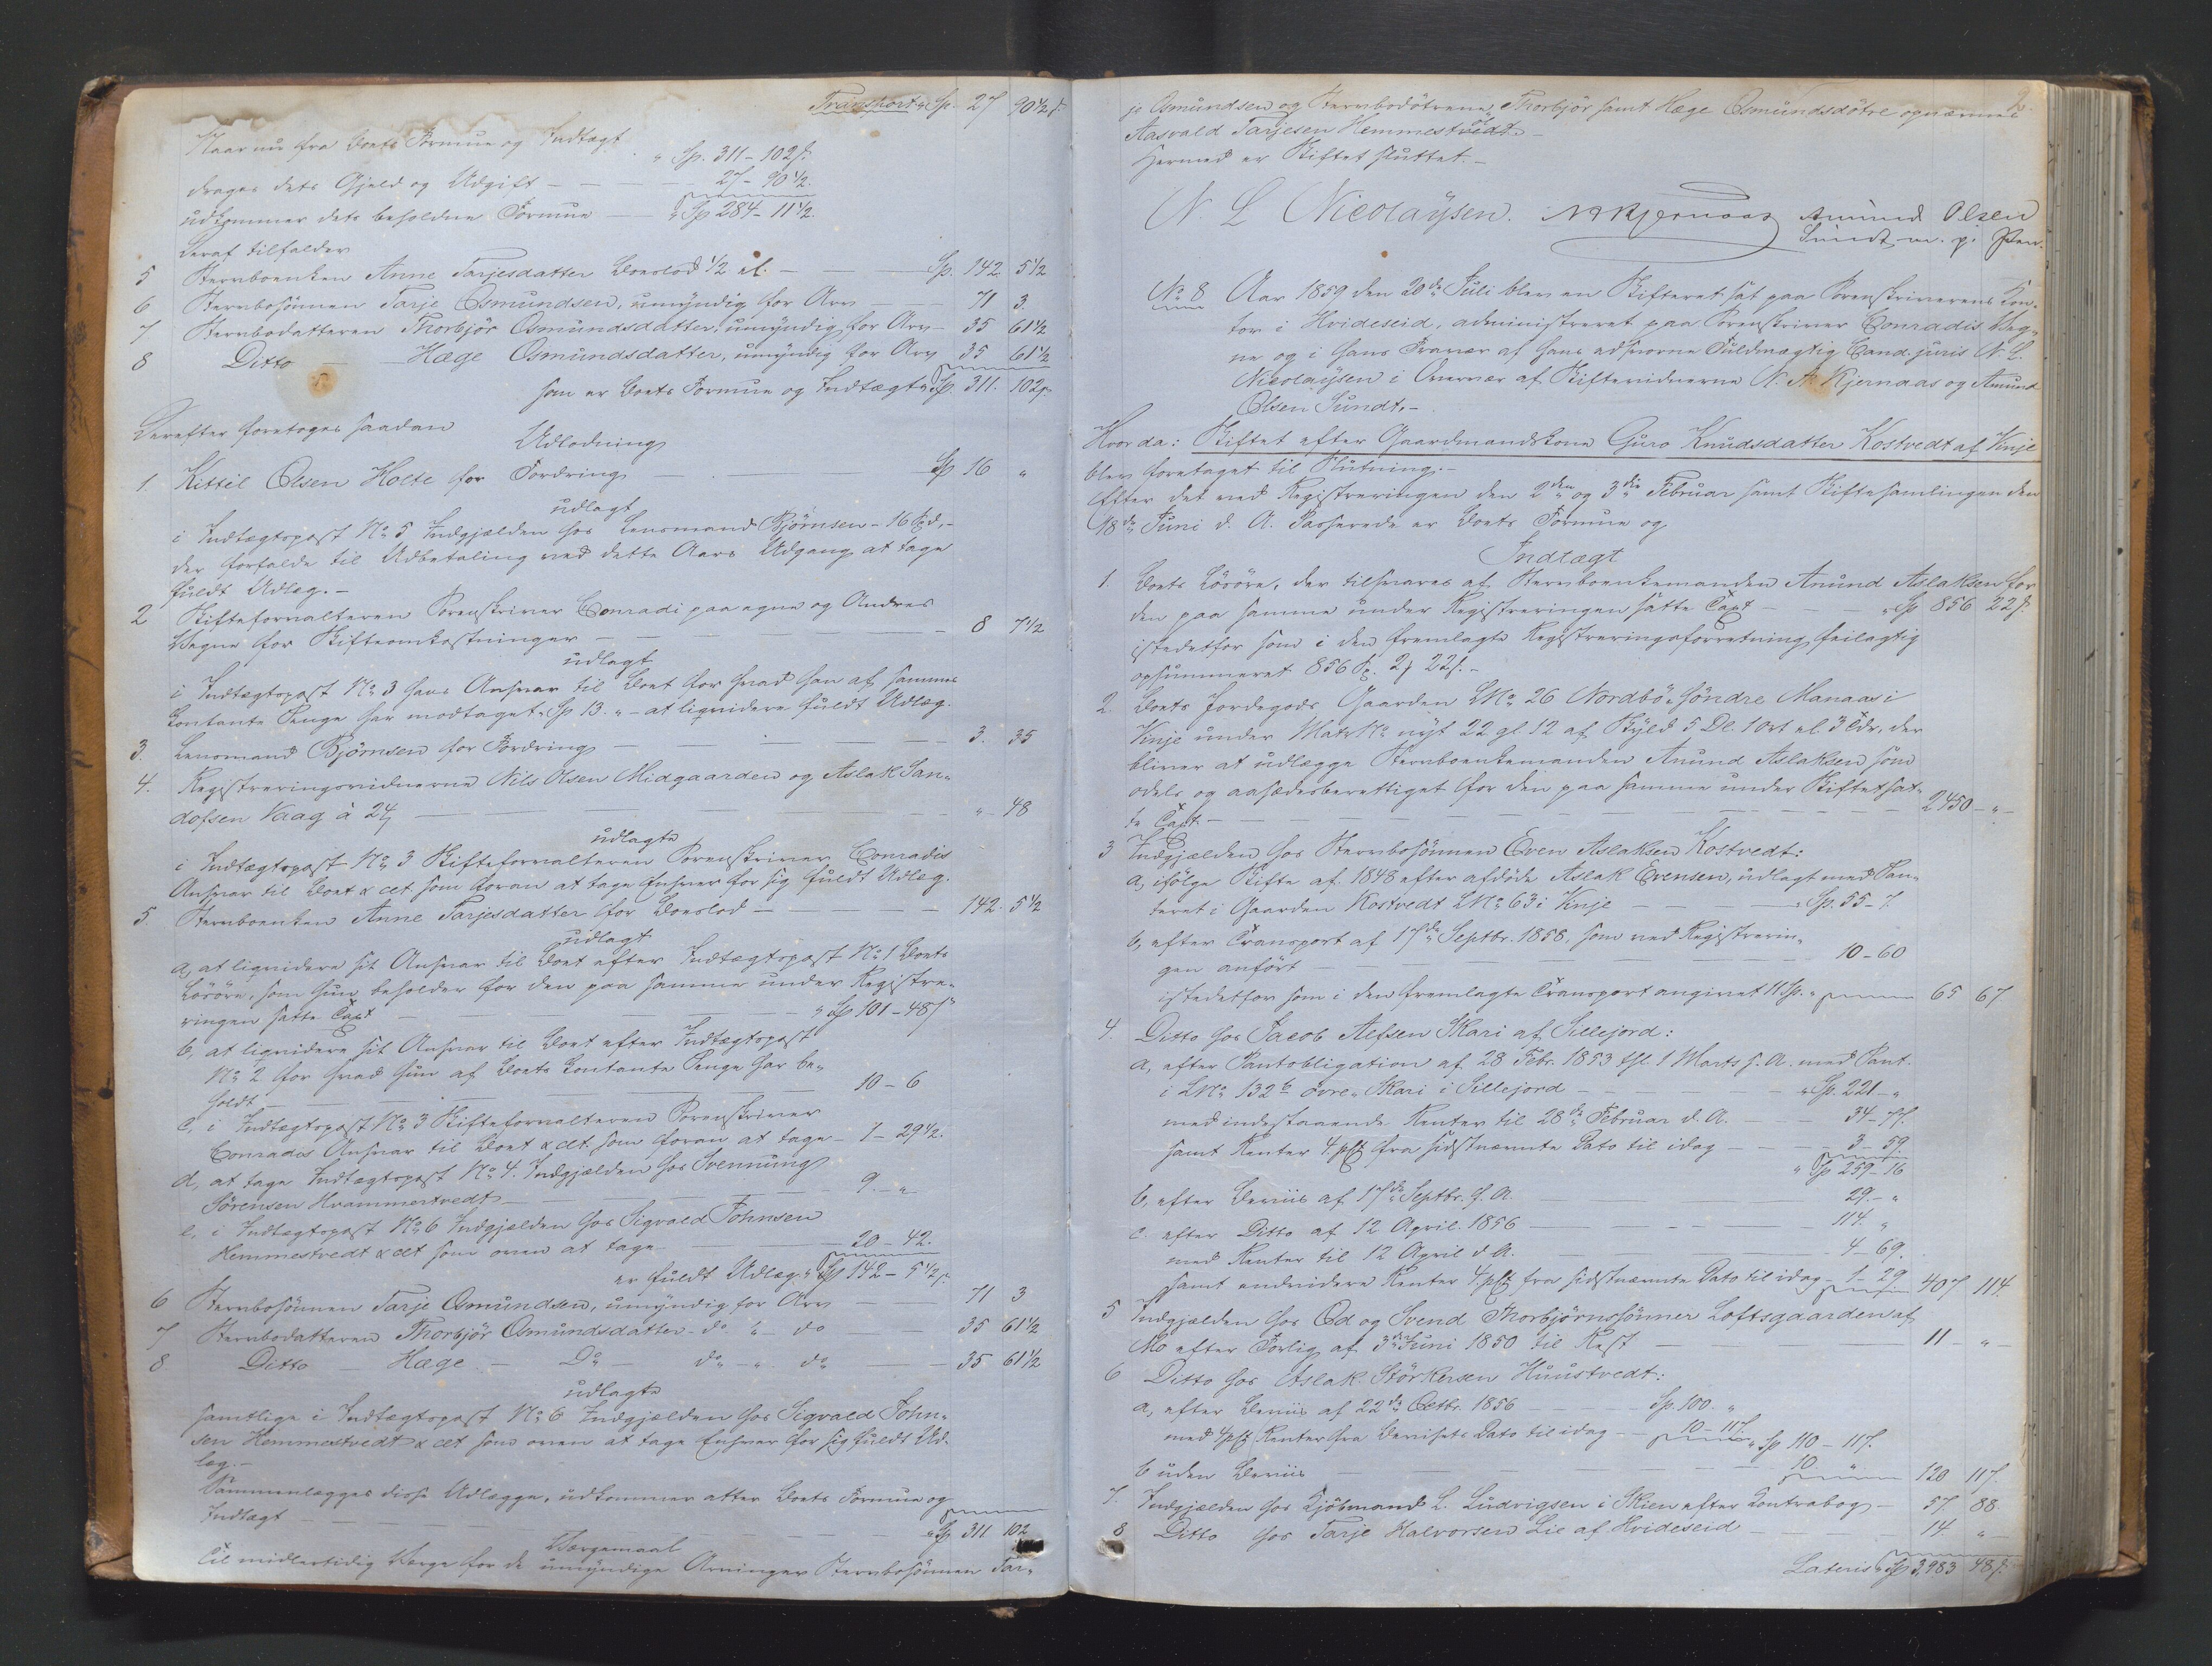 Transport „ Sp. 27 90 1/2 ß
Naar nu fra Boets Formue og Indtægt
„ Sp. 311 - 102 ß
drages dets Gjeld og Udgift — 27 - 90 1/2.
udkommer dets beholdne Formue — „ Sp 284 - 11 1/2.
Deraf tilfalder
5 Stervboenken Anne Tarjesdatter Boeslod 1/2 el. — Sp. 142 5 1/2
6 Stervbosönnen Tarje Osmundsen, umyndig for Arv — 71 3
7 Stervbodatteren Thorbjör Osmundsdatter, umyndig for Arv — 35 61 1/2
8 Ditto — Hæge Osmundsdatter, umyndig for Arv 35 61 1/2
som er Boets Formue og Indtægt „ Sp. 311. 102 ß
Derefter foretoges saadan
Udlodning
1. Kittil Olsen Holte for Fordring — Sp 16 „
udlagt
i Indtægtspost No 5 Indgjælden hos Lensmand Björnsen - 16 Spd, -
der forfalde til Udbetaling ved dette Aars Udgang at tage
fuldt Udlæg. -
2 Skifteforvalteren Sorenskriver Conradi paa egne og Andres
Vegne for Skifteomkostninger — 8 7 1/2
udlagt
i Indtægtspost No 3 hans Ansvar til Boet for hvad han af sammes
Contante Penge har modtaget „ Sp 13 „ - at liqvidere fuldt Udlæg.
3. Lensmand Björnsen for Fordring — 3. 35
4. Registreringsvidnerne Nils Olsen Midgaarden og Aslak San-
dofsen Vaag à 24 ß — „ - 48
udlagte
i Indtægtspost No 3 Skifteforvalteren Sorenskriver Conradis
Ansvar til Boet & ct. som foran at tage Enhver for sig fuldt Udlæg.
5. Stervboenken Anne Tarjesdatter for Boeslod — 142. 5 1/2
udlagt
a, at liqvidere sit Ansvar til Boet efter Indtægtspost No 1 Boets
Lösöre, som hun beholder for den paa samme under Registre-
ringen satte Taxt — „ Sp 101 - 48 ß
b, at liqvidere sit Ansvar til Boet efter Indtægtspost
No 2 for hvad hun af Boets Contante Penge har be-
holdt — 10 - 6
c, i Indtægtspost No 3 Skifteforvalteren Sorenskriver
Conradis Ansvar til Boet & ct. som foran at tage - 1 - 29 1/2.
d, at tage Indtægtspost No 4. Indgjælden hos Svennung
Sörensen Hvammestvedt — 9. - „
e, i Indtægtspost No 6 Indgjælden hos Sigvald Johnsen
Hemmestvedt & ct som oven at tage — 20 - 42.
er fuldt Udlæg „ Sp 142 - 5 1/2 ß
6 Stervbosönnen Tarje Osmundsen, umyndig for Arv — 71 3
7 Stervbodatteren Thorbjör Osmundsdatter - do „ - do — 35 61 1/2
8 Ditto — Hæge — Do — do - „ - do — 35 61 1/2
udlagte
samtlige i Indtægtspost No 6 Indgjælden hos Sigvald John-
sen Hemmestvedt & ct som oven at tage Enhver for sig fuldt Ud-
læg. -
Sammenlægges disse Udlægge, udkommer atter Boets Formue og
Indtægt — „ Sp 311 102
Værgemaal
Til midlertidig Værge for de umyndige Arvinger Stervbosönnen Tar-
9.
je Osmundsen og Stervbodötrene Thorbjör samt Hæge Osmundsdötre opnævnes
Aasvald Tarjesen Hemmestvedt. -
Hermed er Skiftet sluttet. -
N. L Nicolaÿsen. N A Kjernaas Amund Olsen
Sundt m. p. Pen.
No 8 Aar 1859 den 20de Juli blev en Skifteret sat paa Sorenskriverens Con-
tor i Hvideseid, administreret paa Sorenskriver Conradis Veg-
ne og i hans Fravær af hans edsvorne Fuldmægtig Cand. juris N. L.
Nicolaÿsen i Overvær af Skiftevidnerne N. A. Kjernaas og Amund
Olsen Sundt. -
Hvor da: Skiftet efter Gaardmandskone Guro Knudsdatter Kostvedt af Vinje
blev foretaget til Slutning. -
Efter det ved Registreringen den 2den og 3die Februar samt Skiftesamlingen den
18de Juni d. A. Passerede er Boets Formue og
Indtægt
1. Boets Lösöre, der tilsvares af Stervboenkemanden Anund Aslaksen for
den paa samme under Registreringen satte Taxt — „ Sp 856 22 ß
istedetfor som i den fremlagte Registreringsforretning feilagtig
opsummeret 856 Sp. 2 ₰ 22 ß. -
2. Boets Jordegods Gaarden LNo 26 Nordbö söndre Manaas i
Vinje under MatrNo nyt 22 gl. 12 af Skyld 5 Dl. 1 ort el. 3 tdr, der
bliver at udlægge Stervboenkemanden Anund Aslaksen som
odels og aasædesberettiget for den paa samme under Skiftet sat-
te Taxt. — 2450 - „ -
3 Indgjælden hos Stervbosönnen Even Aslaksen Kostvedt:
a, ifölge Skifte af 1848 efter afdöde Aslak Evensen, udlagt med Pan-
teret i Gaarden Kostvedt LNo 63 i Vinje — „ Sp. 55 - 7.
b, efter Transport af 17de Septbr. 1858. som ved Registrerin-
gen anfört — 10 - 60
istedetfor som i den fremlagte Transport angivet 11 Sp. „ 65 67
4. Ditto hos Jacob Alfsen Skari af Sillejord:
a, efter Pantobligation af 28 Febr. 1853 thl. 1 Marts s. A. med Pant
i LNo 132 b övre „ Skari i Sillejord — „ Sp. 221 - „
med indestaaende Renter til 28de Februar d. A. — 34 - 77.
samt Renter 4 pCt fra sidstnævnte Dato til idag — 3 - 59.
„ Sp 259 - 16
b, efter Beviis af 17de Septbr. f. A. — 29. - „
c. efter Ditto af 12 April. 1856 — 114. „
med Renter til 12 April d A. — 4 - 69.
samt endvidere Renter 4 pCt fra sidstnævnte Dato til idag - 1 - 29 407 114
5 Indgjælden hos Od og Svend Thorbjörnssönner Loftsgaarden af
Mo efter Forlig af 3die Juni 1850 til Rest — 11 - „ -
6 Ditto hos Aslak Störkersen Huustvedt:
a, efter Beviis af 22de Octbr. 1856 — Sp. 100. „
med 4 pCt Renter fra Bevisets Dato til idag — 10 - 117. „ Sp 110 - 117.
b uden Beviis — 10. „ 120 117.
7. Indgjælden hos Kjöbmand L. Ludvigsen i Skien efter Contrabog — 57. 88.
8 Ditto hos Tarje Halvorsen Lie af Hvideseid — 14 „ -
Lateris „ Sp 3,983 48 ß.